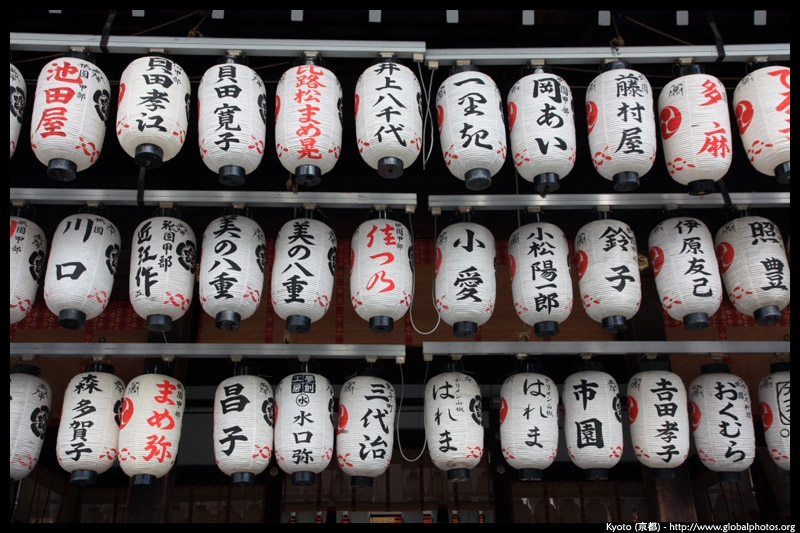 池田屋
貝田孝江
貝田寛子
比路松まめ晃
井上八千代
一乃
岡あい
藤村屋
多麻
川口
祇園甲部
近江作
美の八重
美の八重
佳つ乃
小愛
小松陽一郎
鈴子
伊原友己
照豊
森多賀子
まめ弥
昌子
水口弥
三代治
はれま
はれま
市園
吉田孝子
おくむら
Kyoto (京都) - http://www.globalphotos.org